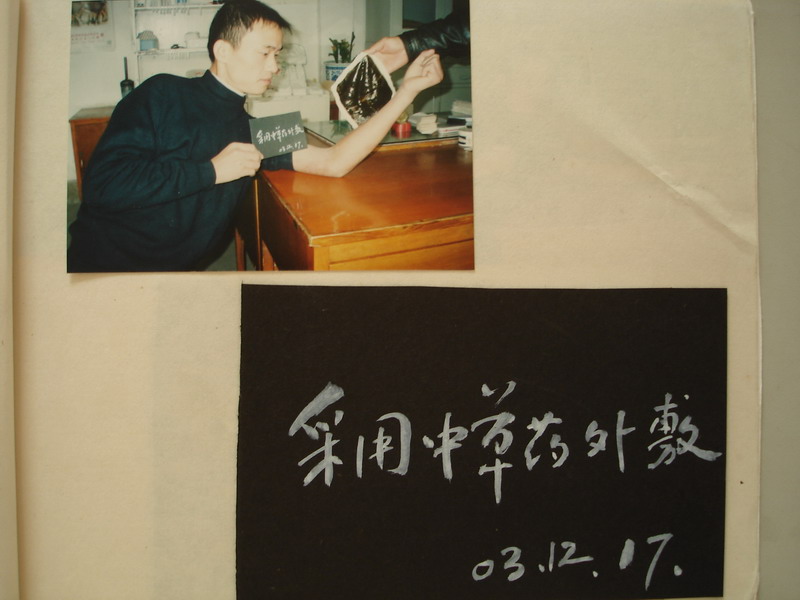 采用中草药外敷
03.12.17.
采用中草药外敷
03.12.17.